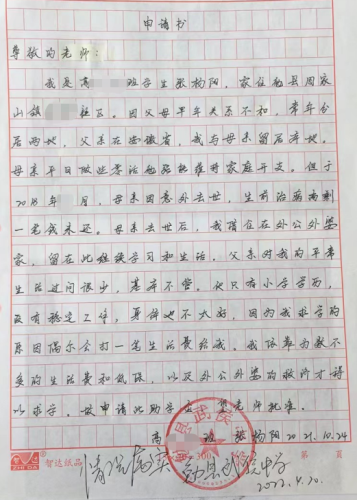 申请书
尊敬的老师：
我是高 班学生张杨阳，家住勉县周家
山镇 社区。因父母早年关系不和，常年分
居两地，父亲在安徽省，我与母亲留居本地。
母亲平日做些零活勉强维持家庭开支。但于
2018年 月，母亲因意外去世，生前治病尚剩
一笔钱未还。母亲去世后，我借住在外公外婆
家，留在此继续学习和生活，父亲对我的平常
生活过问很少，基本不管。他只有小学学历，
没有稳定工作，身体也不大好，因为我求学的
原因偶尔会打一笔生活费给我。我依靠为数不
多的生活费和低保，以及外公外婆的救济才得
以求学。故申请此助学金，望老师批准。
高 班 张杨阳 2021.10.24
智达纸品
300
第 页
情况属实
勉县武侯中学
2022.4.20.